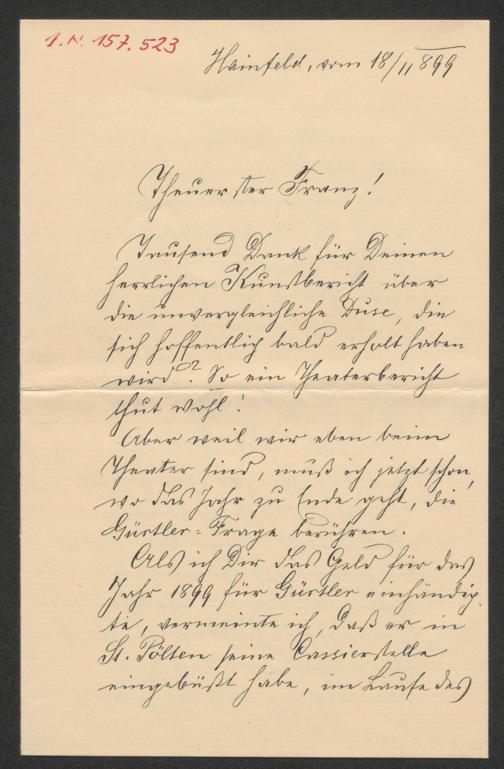 I.N. 157.523
Hainfeld, vom 18/11 899
Theuerster Franz!
Tausend Dank für Deinen
herrlichen Kunstbericht über
die unvergleichliche Duse, die
sich hoffentlich bald erholt haben
wird? So ein Theaterbericht
thut wohl!
Aber weil wir eben beim
Theater sind, muß ich jetzt schon,
wo das Jahr zu Ende geht, die
Gürtler-Frage berühren.
Als ich Dir das Geld für das
Jahr 1899 für Gürtler einhändig-
te, vermeinte ich, daß er in
St. Pölten seine Cassierstelle
eingebüßt habe, im Laufe des